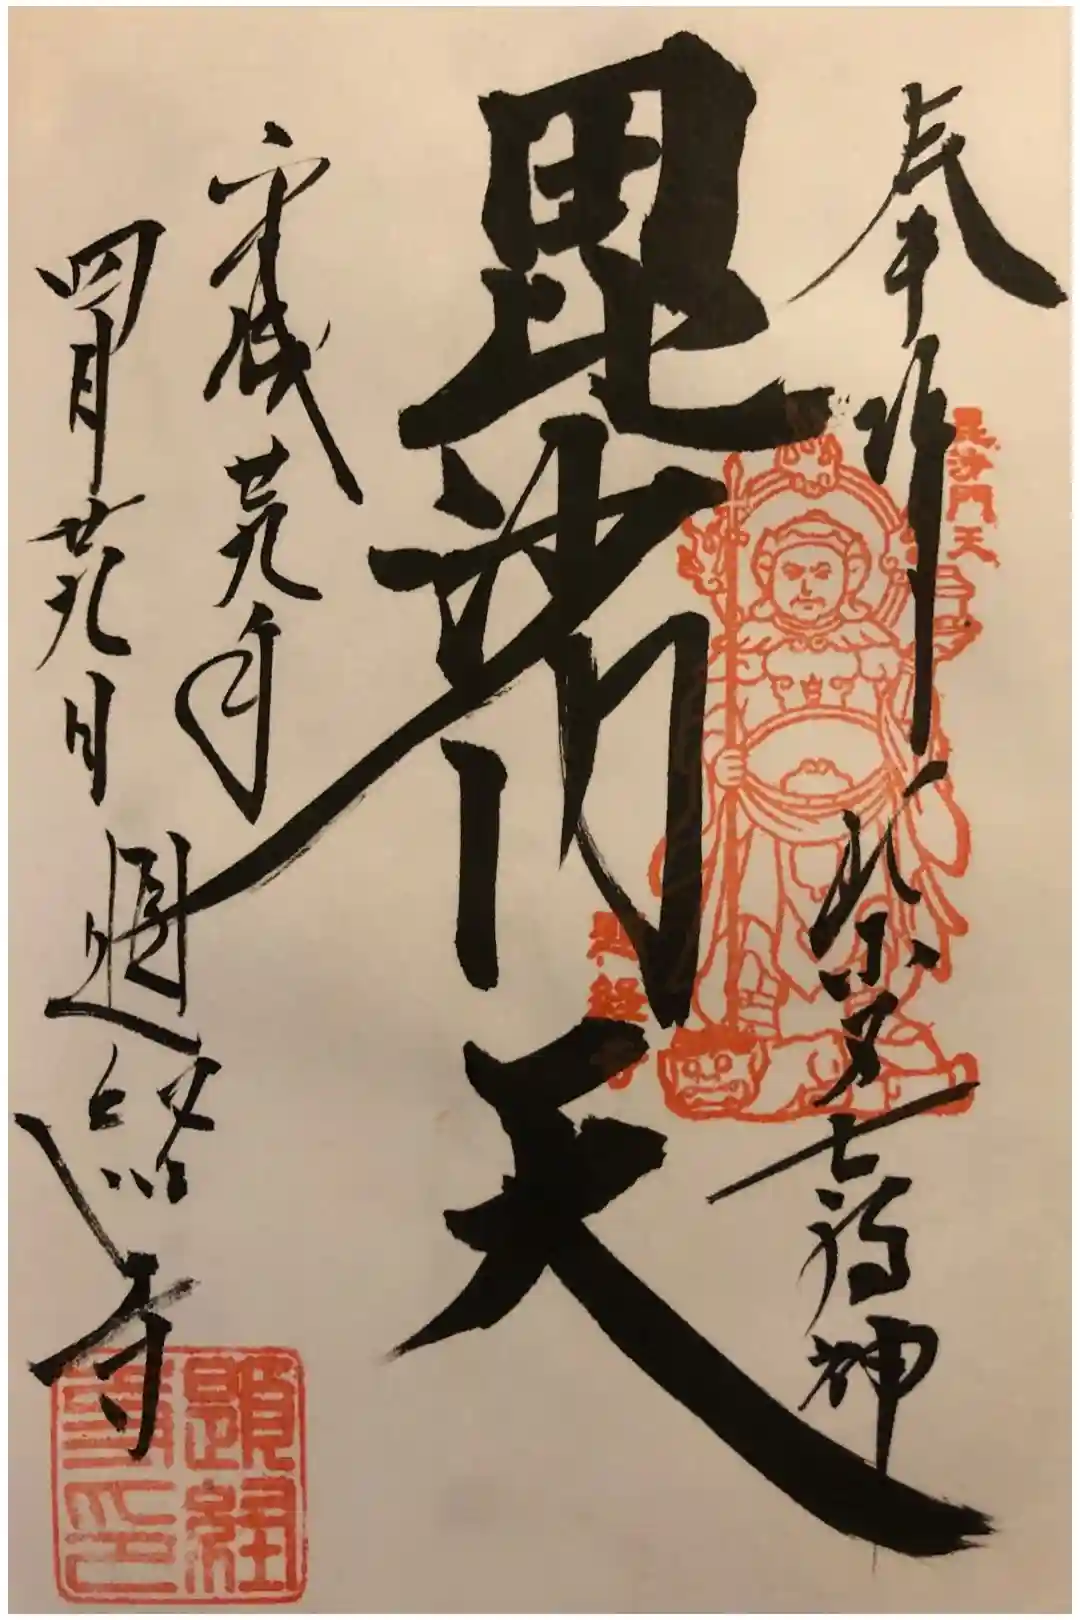 奉拝 柴又七福神
毘沙門天
毘沙門天
題経寺
平成廿九年
四月廿九日 題経寺
題経寺印